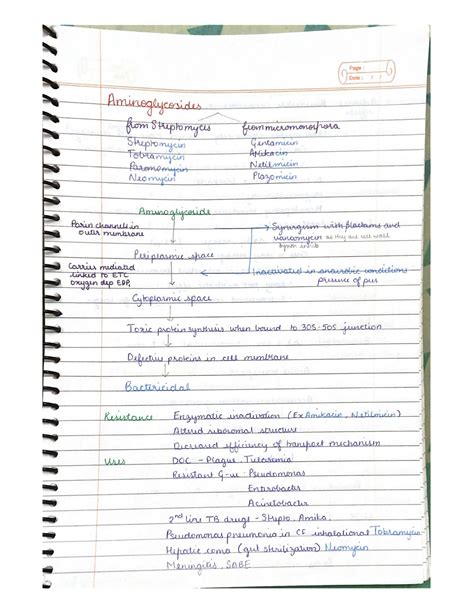 Page :
Date : / /
Aminoglycosides
from Streptomyces from micromonospora
Streptomycin Gentamicin
Tobramycin Amikacin
Paromomycin Netilmicin
Neomycin Plazomicin
Aminoglycoside
Porin channels in outer membrane
Synergism with βlactams and vancomycin as they are cell wall synth inhib
Periplasmic space
Carrier mediated linked to ETC oxygen dep EDP,
Inactivated in anaerobic conditions presence of pus
Cytoplasmic space
Toxic protein synthesis when bound to 30S-50S junction
Defective proteins in cell membrane
Bactericidal
Resistance Enzymatic inactivation (Ex Amikacin, Netilmicin)
Altered ribosomal structure
Decreased efficiency of transport mechanism
Uses DOC - Plague, Tularemia
Resistant G-ve - Pseudomonas
Enterobacter
Acinetobacter
2nd line TB drugs - Strepto, Amika,
Pseudomonas pneumonia in CF inhalational Tobramycin
Hepatic coma (gut sterilization) Neomycin
Meningitis, SABE